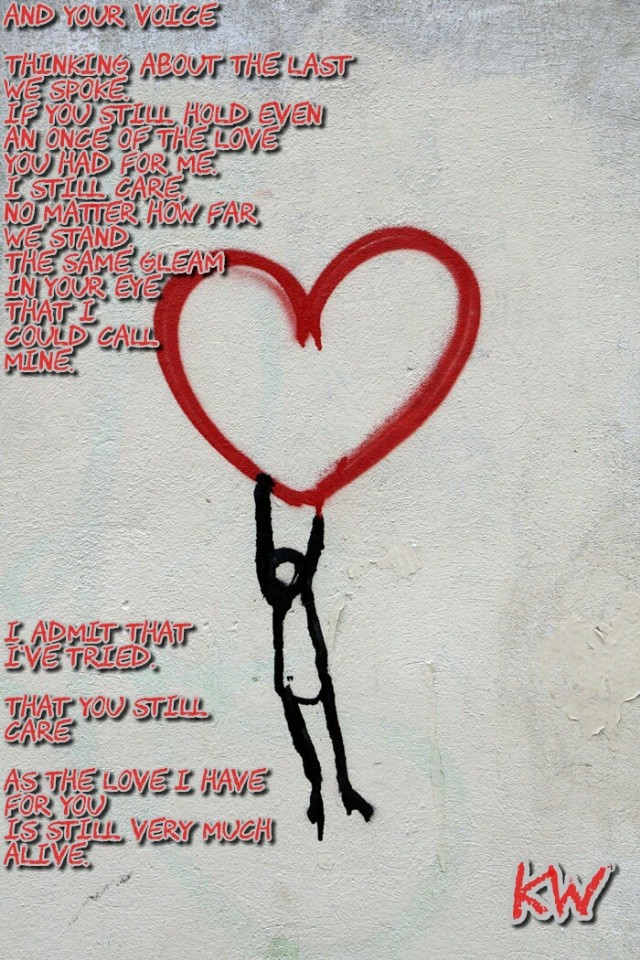 AND YOUR VOICE
THINKING ABOUT THE LAST
WE SPOKE.
IF YOU STILL HOLD EVEN
AN ONCE OF THE LOVE
YOU HAD FOR ME.
I STILL CARE,
NO MATTER HOW FAR
WE STAND,
THE SAME GLEAM
IN YOUR EYE
THAT I
COULD CALL
MINE.
I ADMIT THAT
I'VE TRIED.
THAT YOU STILL
CARE
AS THE LOVE I HAVE
FOR YOU
IS STILL VERY MUCH
ALIVE.
KW